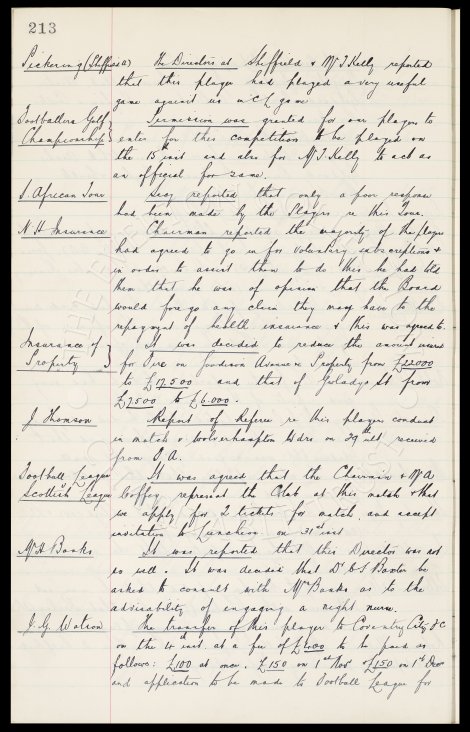 213
Pickering (Sheffield) The Directors at Sheffield & Mr T Kelly reported
that this player had played a very useful
game against us in C L game
Footballers Golf Permission was granted for our players to
Championship } enter for this competition to be played on
the 15th inst and also for Mr T Kelly to act as
an official for same.
S. African Tour Secy reported that only a poor response
had been made by the Players re this Tour.
N. H. Insurance Chairman reported the majority of the players
had agreed to go in for voluntary subscriptions &
in order to assist them to do this he had told
them that he was of opinion that the Board
would forego any claim they may have to the
repayment of health insurance & this was agreed to.
Insurance of It was decided to reduce the amount insured
Property } for Fire on Goodison Avenue Property from £22000
to £17500 and that of Gwladys St from
£7500 to £6,000.
J Thomson Report of Referee re this players conduct
in match v. Wolverhampton Wdrs on 29th ult received
from F.A.
Football League It was agreed that the Chairman & Mr A
Scottish League Coffey represent the Club at this match & that
we apply for 2 tickets for match and accept
invitation to Luncheon on 31st inst
Mr A Banks It was reported that this Director was not
so well. It was decided that Dr C S Baxter be
asked to consult with Mrs Banks as to the
advisability of engaging a night nurse.
J. G. Watson The transfer of this player to Coventry City FC
on the inst. at a fee of £400 to be paid as
follows: £100 at once, £150 on 1st Nov & £150 on 1st Decr
and application to be made to Football League for